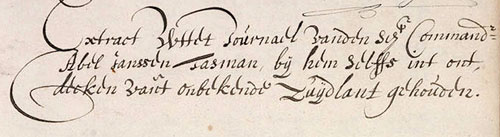 Extract Uyttet Journael vanden Scpr Command=
Abel Janssen Tasman, bij hem selffs int ont
decken vant onbekende Zuijdlant gehouden.